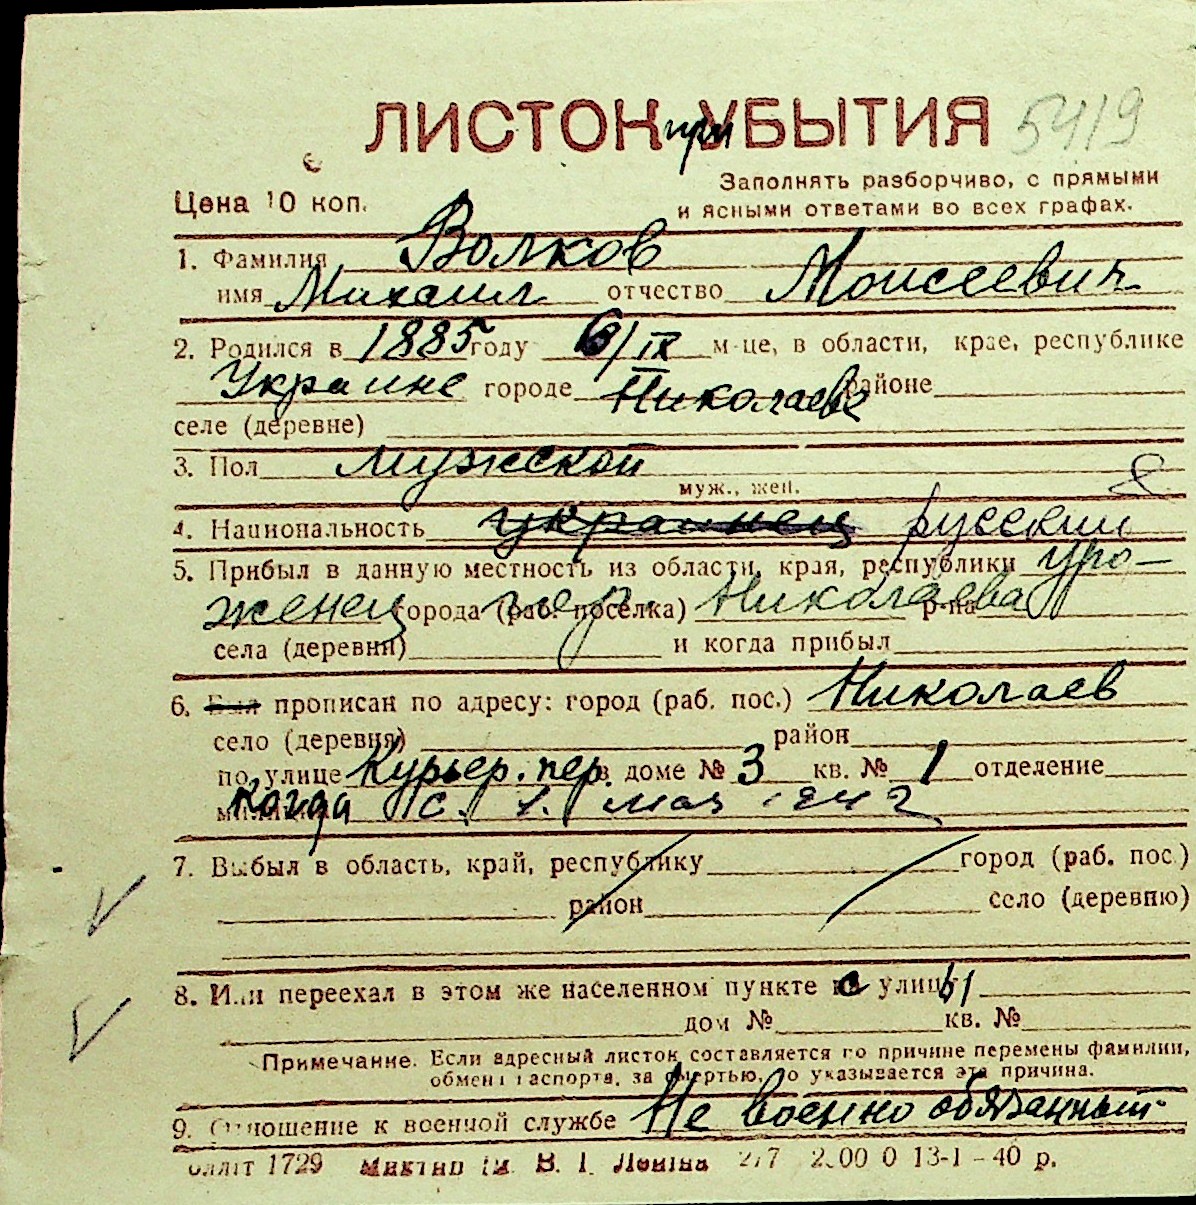 ЛИСТОК при УБЫТИЯ 5419
Заполнять разборчиво, с прямыми
Цена 10 коп. и ясными ответами во всех графах.
1. Фамилия Волков
имя Михаил отчество Моисеевич
2. Родился в 1885 году 6/IX м-це, в области, крае, республике
Украине городе Николаеве районе
селе (деревне)
3. Пол мужской
муж., жен.
4. Национальность украинец русский
5. Прибыл в данную местность из области, края, республики уро–
женец города (раб. поселка) гор. Николаева р-на
села (деревни) и когда прибыл
6. Был прописан по адресу: город (раб. пос.) Николаев
село (деревня) район
по улице Курьер. пер. в доме № 3 кв. № 1 отделение
милиции Когда с 1. мая 1942
7. Выбыл в область, край, республику город (раб. пос.)
район село (деревню)
8. Или переехал в этом же населенном пункте с улицы
дом № кв. №
Примечание. Если адресный листок составляется по причине перемены фамилии,
обмена паспорта, за смертью, то указывается эта причина.
9. Отношение к военной службе Не военно обязанный
1729 им. В. І. Леніна 13-I - 40 р.